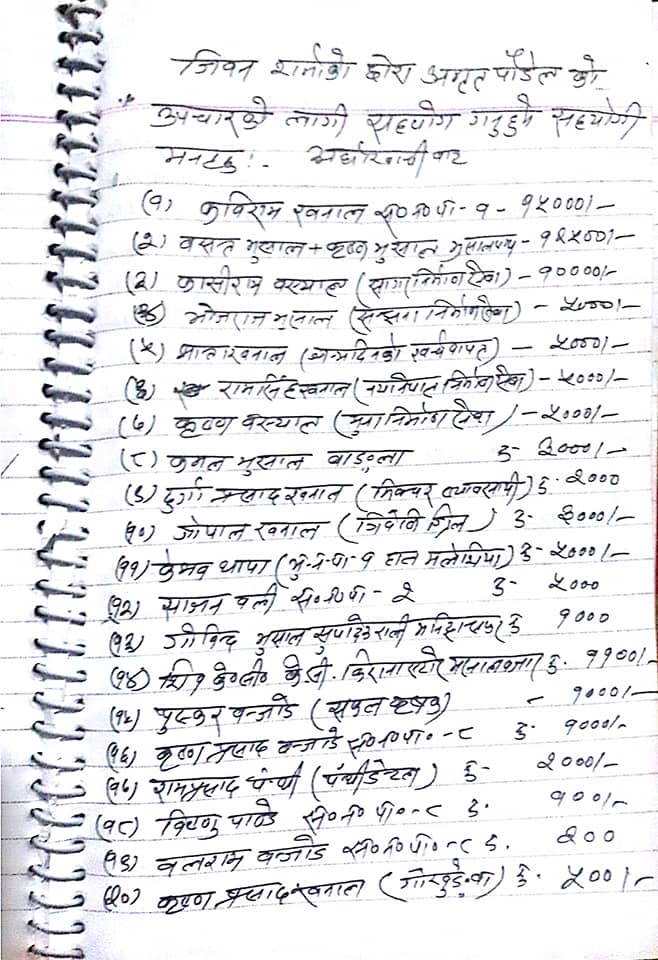 जिवन शर्माको छोरा अमृत पौडेल को
उपचारको लागी सहयोग गनुहुने सहयोगी
मनहरु :- अर्घाखाँची बाट
(१) कविराम खनाल स०न०पा - १ - १५०००/-
(२) वसन्त भुसाल + कृष्ण भुसाल भुसालपसु - १२५००/-
(३) काशीराम बस्याल (सागा निर्माण सेवा) - १००००/-
(४) भोजराज भुसाल (सन्झना निर्माण सेवा) - ५०००/-
(५) खनाल (जन्मदिनको खर्च वापत) - ५०००/-
(६) रामसिंह खनाल (नयाँनेपाल निर्माण सेवा) - ५०००/-
(७) कृष्ण बस्याल (युवा निर्माण सेवा) - ५०००/-
(८) कमल भुसाल वाडला रु- ३०००/-
(९) दुर्गा प्रसाद खनाल (मिक्चर व्यावसायी) रु. २०००
(१०) गोपाल खनाल (त्रिवेनि ग्रिल) रु ३०००/-
(११) केशव थापा (भु.न.पा-१ हाल मलेसिया) रु- ५०००/-
(१२) साजन वली स०न०पा - २ रु- ५०००
(१३) गोविन्द भुसाल सुपादेउराली रु १०००
(१४) के०सी० के.सी. किराना स्टोर रु. ११००/-
(१५) पुस्कर वन्जाडे (सफल कृषक) - १०००/-
(१६) कृष्ण प्रसाद वन्जाडे स०न०पा० -८ रु. १०००/-
(१७) रामप्रसाद पन्थी (पंथी डेन्टल) रु- २०००/-
(१८) विष्णु पाण्डे स०न०पा० -८ रु. १००/-
(१९) वलराम वन्जाडे स०न०पा० -८ रु. २००
(२०) कृष्ण प्रसाद खनाल (गोरखुङ्गेवा) रु. ५००/-